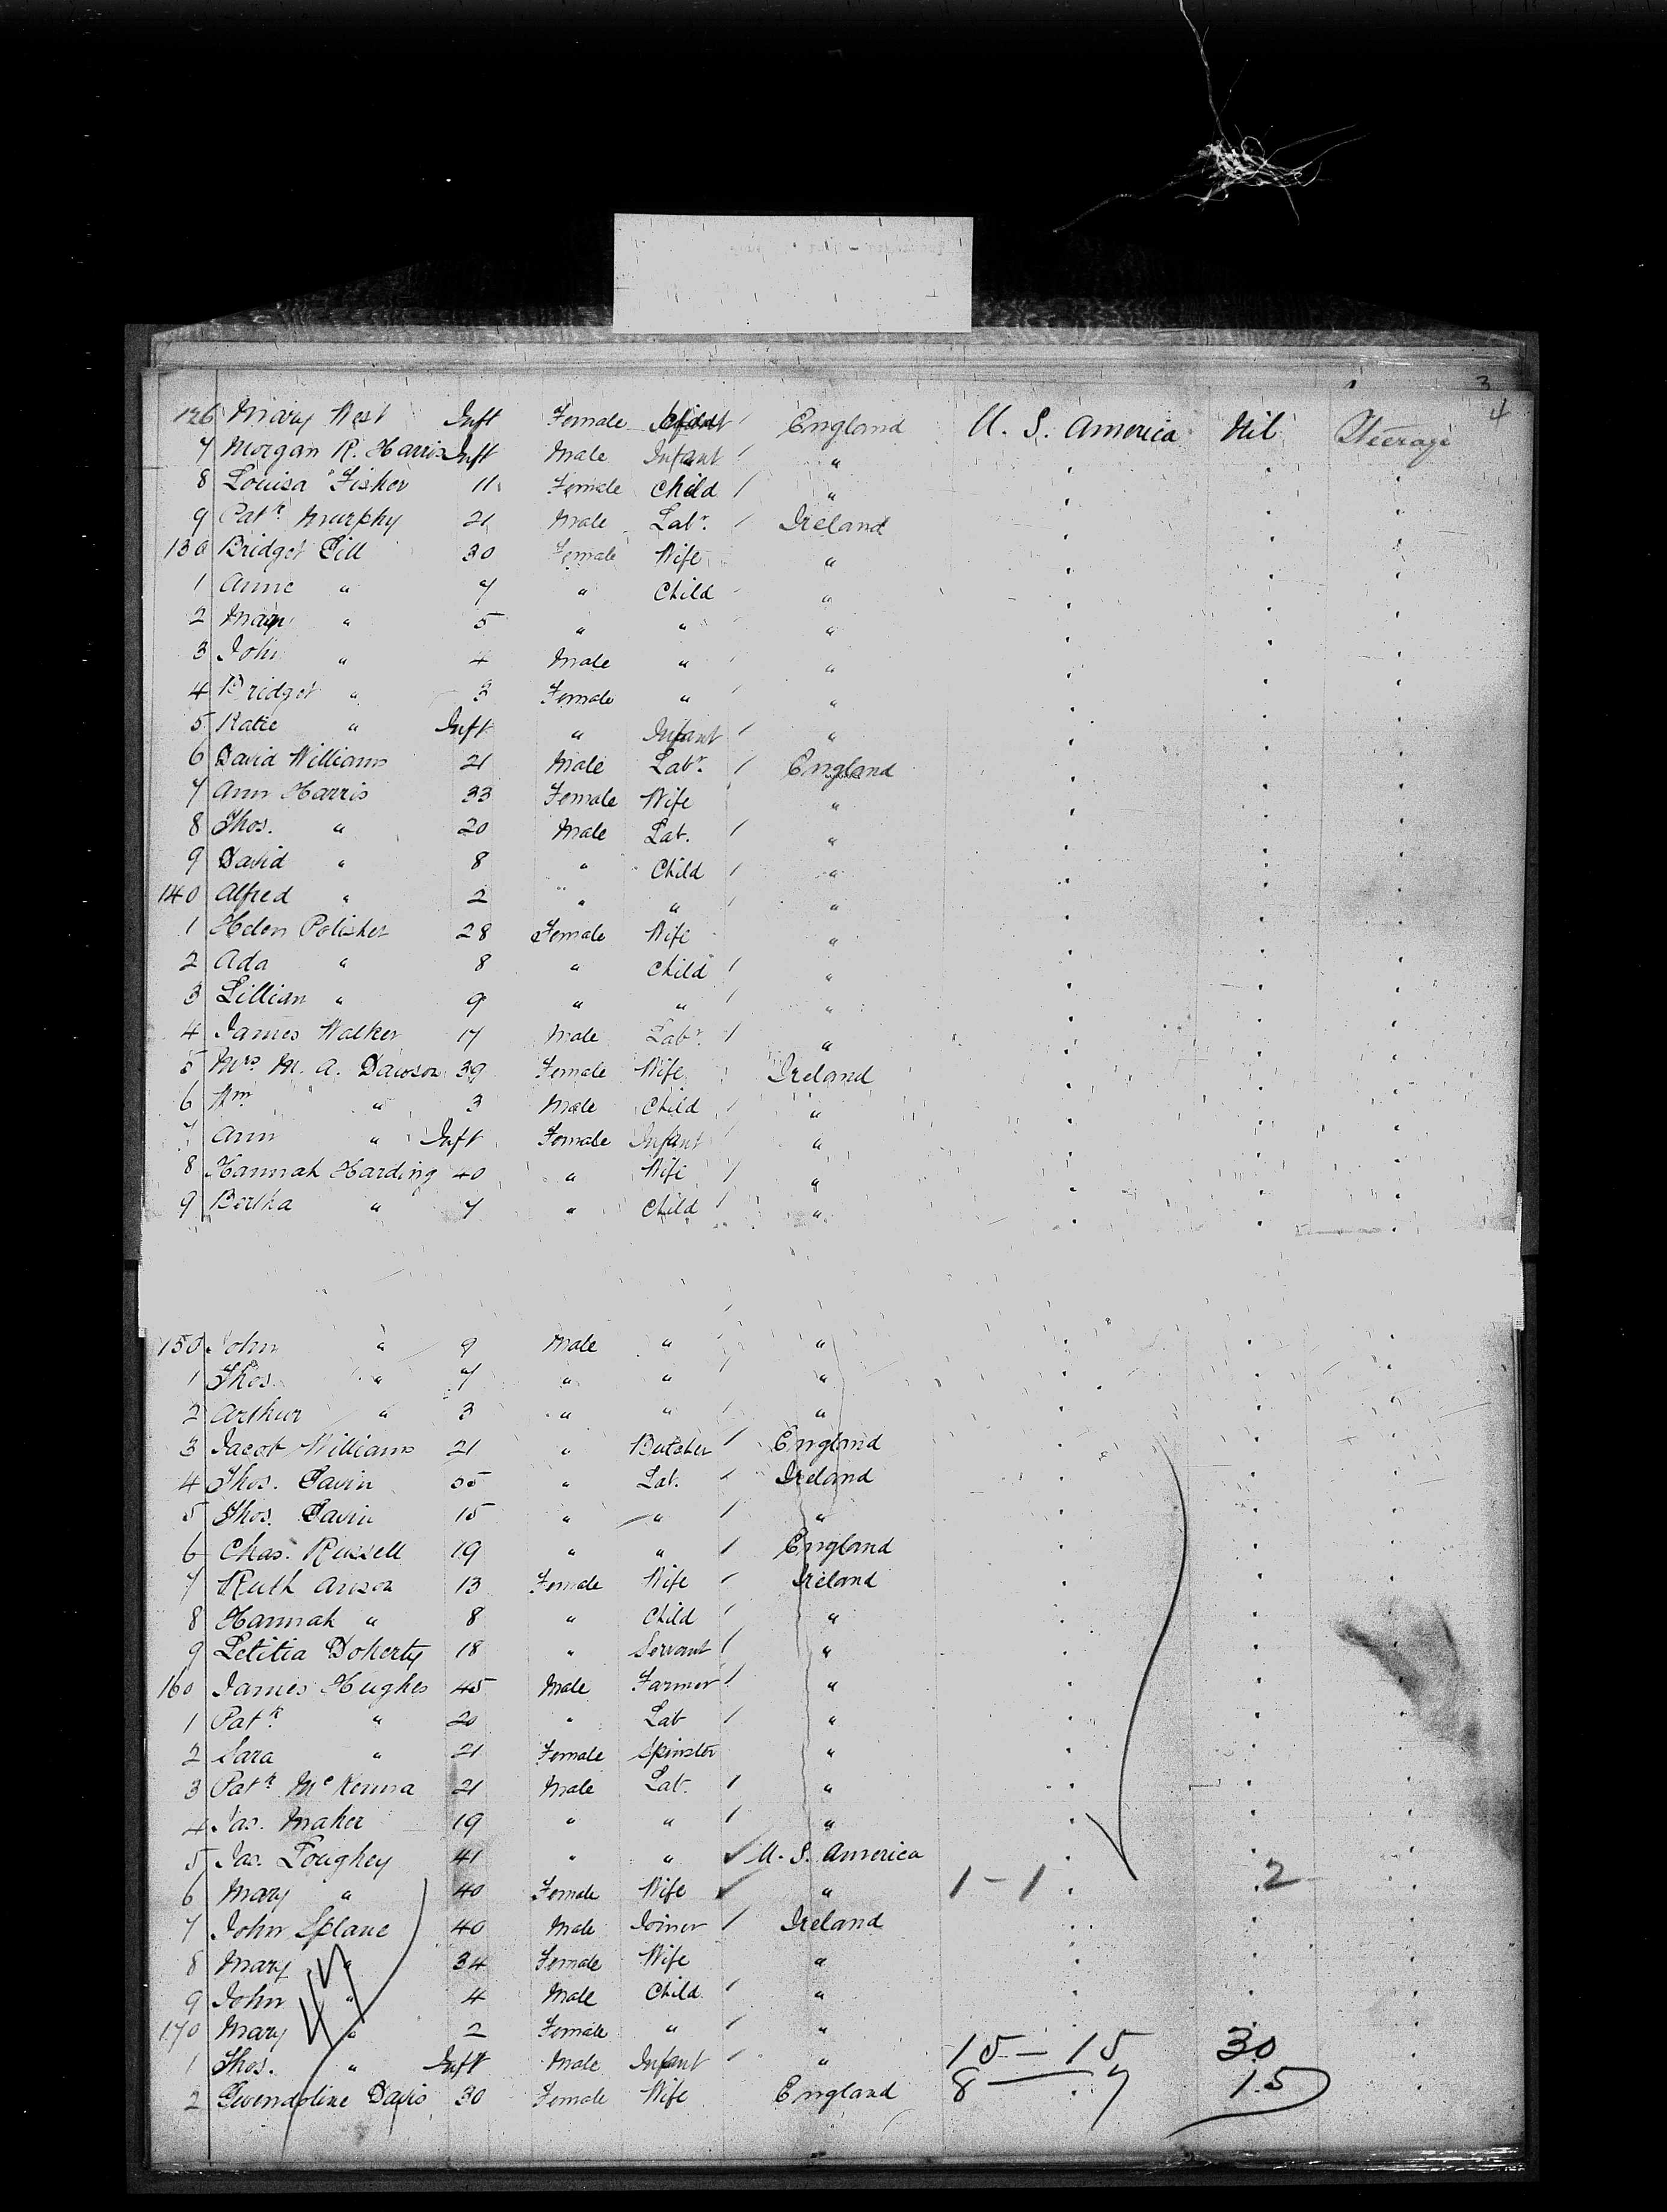 3
4
126 Mary West Inft Female Infant England U. S. America Nil Steerage
7 Morgan R. Harris Inft Male Infant "
8 Louisa Fisher 11 Female Child "
9 Patk Murphy 21 Male Labr. Ireland
130 Bridget Gill 30 Female Wife "
1 Anne " 7 " Child "
2 Mary " 5 " " "
3 John " 4 Male " "
4 Bridget " 3 Female " "
5 Katie " Inft " Infant "
6 David Williams 21 Male Labr. England
7 Ann Harris 33 Female Wife "
8 Thos. " 20 Male Lab. "
9 David " 8 " Child "
140 Alfred " 2 " " "
1 Helen Polisher 28 Female Wife "
2 Ada " 8 " Child "
3 Lillian " 9 " " "
4 James Walker 17 Male Labr. "
5 Mrs M. A. Dawson 39 Female Wife Ireland
6 Wm " 3 Male Child "
7 Ann " Inft Female Infant "
8 Hannah Harding 40 " Wife "
9 Bertha " 7 " Child "
150 John " 9 Male " "
1 Thos. " 7 " " "
2 Arthur " 3 " " "
3 Jacob Williams 21 " Butcher England
4 Thos. Gavin 55 " Lab. Ireland
5 Thos. Gavin 15 " " "
6 Chas. Russell 19 " " England
7 Ruth Anson 13 Female Wife Ireland
8 Hannah " 8 " Child "
9 Letitia Doherty 18 " Servant "
160 James Hughes 45 Male Farmer "
1 Patk " 20 " Lab "
2 Sara " 21 Female Spinster "
3 Patk McKenna 21 Male Lab. "
4 Jas. Maher 19 " " "
5 Jas. Loughey 41 " " U. S. America
6 Mary " 40 Female Wife " 1-1 2
7 John Splane 40 Male Joiner Ireland
8 Mary " 34 Female Wife "
9 John " 4 Male Child "
170 Mary " 2 Female " "
1 Thos. " Inft Male Infant " 15-15 30
2 Gwendoline Davis 30 Female Wife England 8-7 15